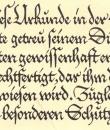 ese Urkunde in der
te getreü seinem Di
en gewissenhaft er
chtfertigt, das ihm
wiesen wird. Zügle
besonderen Schütz